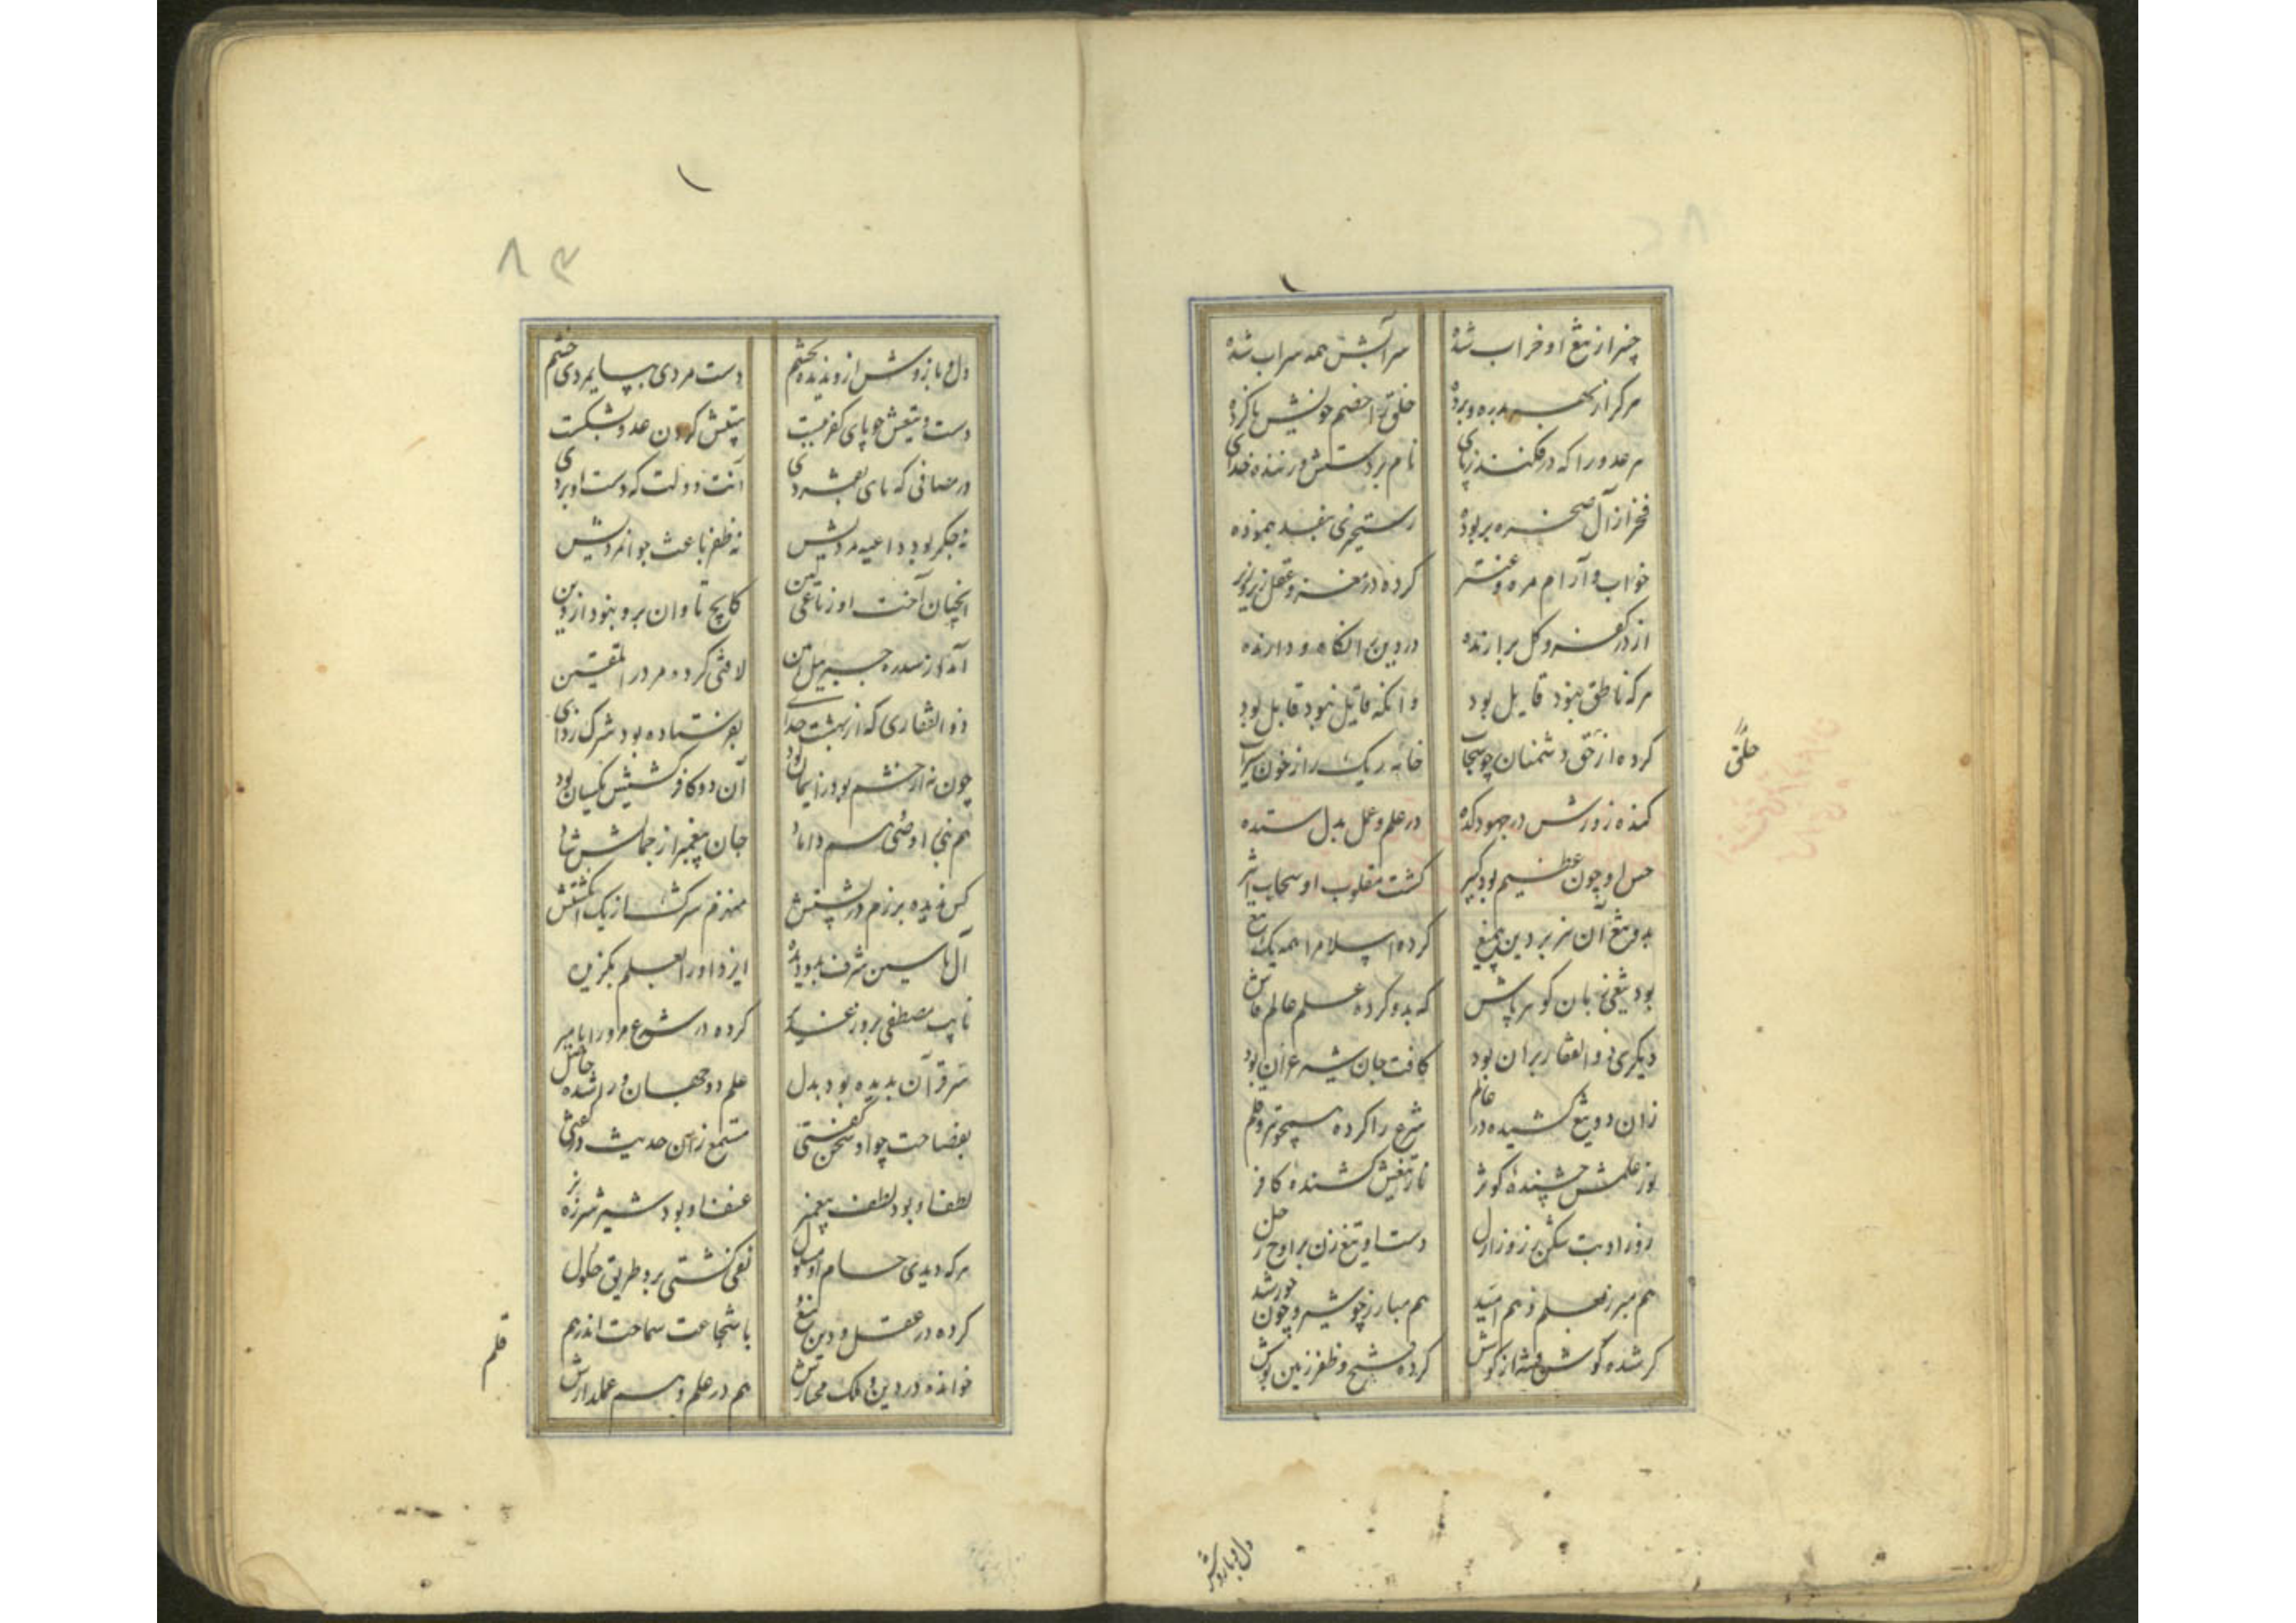 خیبر از تیغ او خراب شده
سرآبش همه سراب شده
هرکرا زبهر بدره و برده
خلق را خصم خویش ناکرده
هر عدو را که در فکند ز پای
نام بر دستش در زننده خدای
فخر از آل صخره بربوده
رستخیزی بنقد بنموده
خواب و آرام مره و عنتر
کرده در مغز و عقل زیر و زبر
از در کفر و کل برآرنده
در دین را نگاه دارنده
هرکه ناطق نبود قایل بود
وانکه قایل نبود قابل بود
کرده از خون دشمنان چو سحاب
خانه ریک را ز خون سیراب
کنده زورش در جهودکده
در علم و عمل بدل ستده
حس او چون عظیم بود کبیر
گشت مقلوب او سحاب اثیر
بدو تیغ آن هژبر دین بیمیغ
کرده اسلام را همه یک تیغ
بود تیغی زبان گوهر پاش
که بدو کرده علم عالم فاش
دیگری ذوالفقار بران بود
کافت جان شیر غران بود
زان دو تیغ کشیده در عالم
شرع را کرده همچو تیر و قلم
نوز علمش چشیده کوثر
نار تیغش کشنده کافر
زور او بت شکن ز روز ازل
دست او تیغ زن بر اوج زحل
هم مبرز بعلم و هم امید
هم مبارز چو شیر و چون خورشید
کر شده گوش فتنه از کوسش
کرده فتح و ظفر زمین بوسش
خلق
دل و بازوش
۸۳
دل و بازوش ازو ندیده بچشم
دست مردی بپایمردی خشم
دست و تیغش چو پای کفر ببست
تیغش گردن عدو بشکست
در مصافی که پای بفشردی
آنت دولت که دست او بردی
نه جگر بود داعیه مردیش
نه ظفر باعث جوانمردیش
آنچنان آخت او ز باغی کین
کایچ تاوان برو نبود از دین
آمد از سدره جبرییل امین
لافتی کرده مر ورا تلقین
ذوالفقاری که از بهشت خدای
بفرستاده بود شرک زدای
چون نه از خشم بود ز ایمان بود
آن دو کافر کشیش یکسان بود
هم نبی را وصی و هم داماد
جان پیغمبر از جمالش شاد
کس ندیده برزم در پشتش
منهزم سرکش از یک انگشتش
آل یاسین شرف بدو دیده
ایزد او را بعلم بگزیده
نایب مصطفی بروز غدیر
کرده در شرع مر ورا بامیر
سر قرآن بدیده بود بدل
علم دو جهان ورا شده حاصل
بفصاحت چو او سخن گفتی
مستمع زان حدیث در سفتی
لطف او بود لطف پیغمبر
عنف او بود شیر شرزه نر
هرکه دیدی حسام او مسلول
نفی گشتی برو طریق حلول
کرده در عقل و دین
با شجاعت سماحت اندر هم
خوانده در دین و ملک مختارش
هم در علم و هم علمدارش
قلم